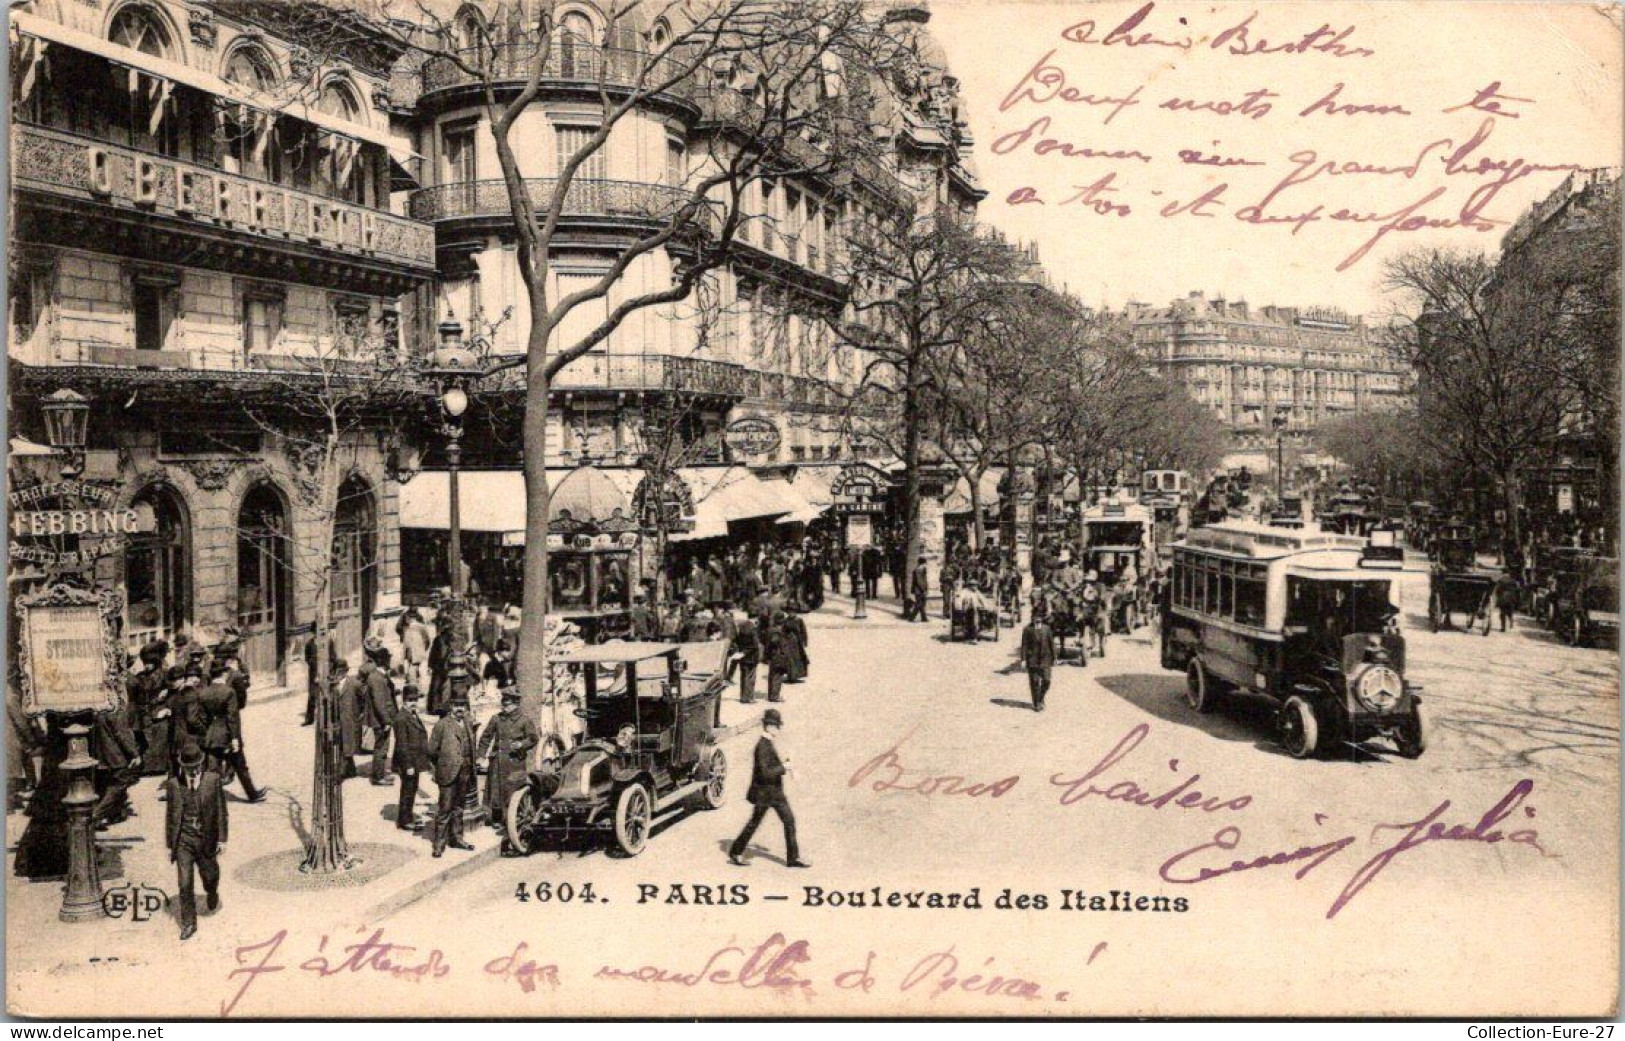 chère Berthe
Deux mots pour te
donner un grand bonjour
a toi et aux enfants
OBERTHUR
PROFESSEUR
STEBBING
PHOTOGRAPHE
STEBBING
Bons baisers
Julia
4604. PARIS – Boulevard des Italiens
ELD
J'attends des nouvelles de Pierre!
Collection-Eure-27